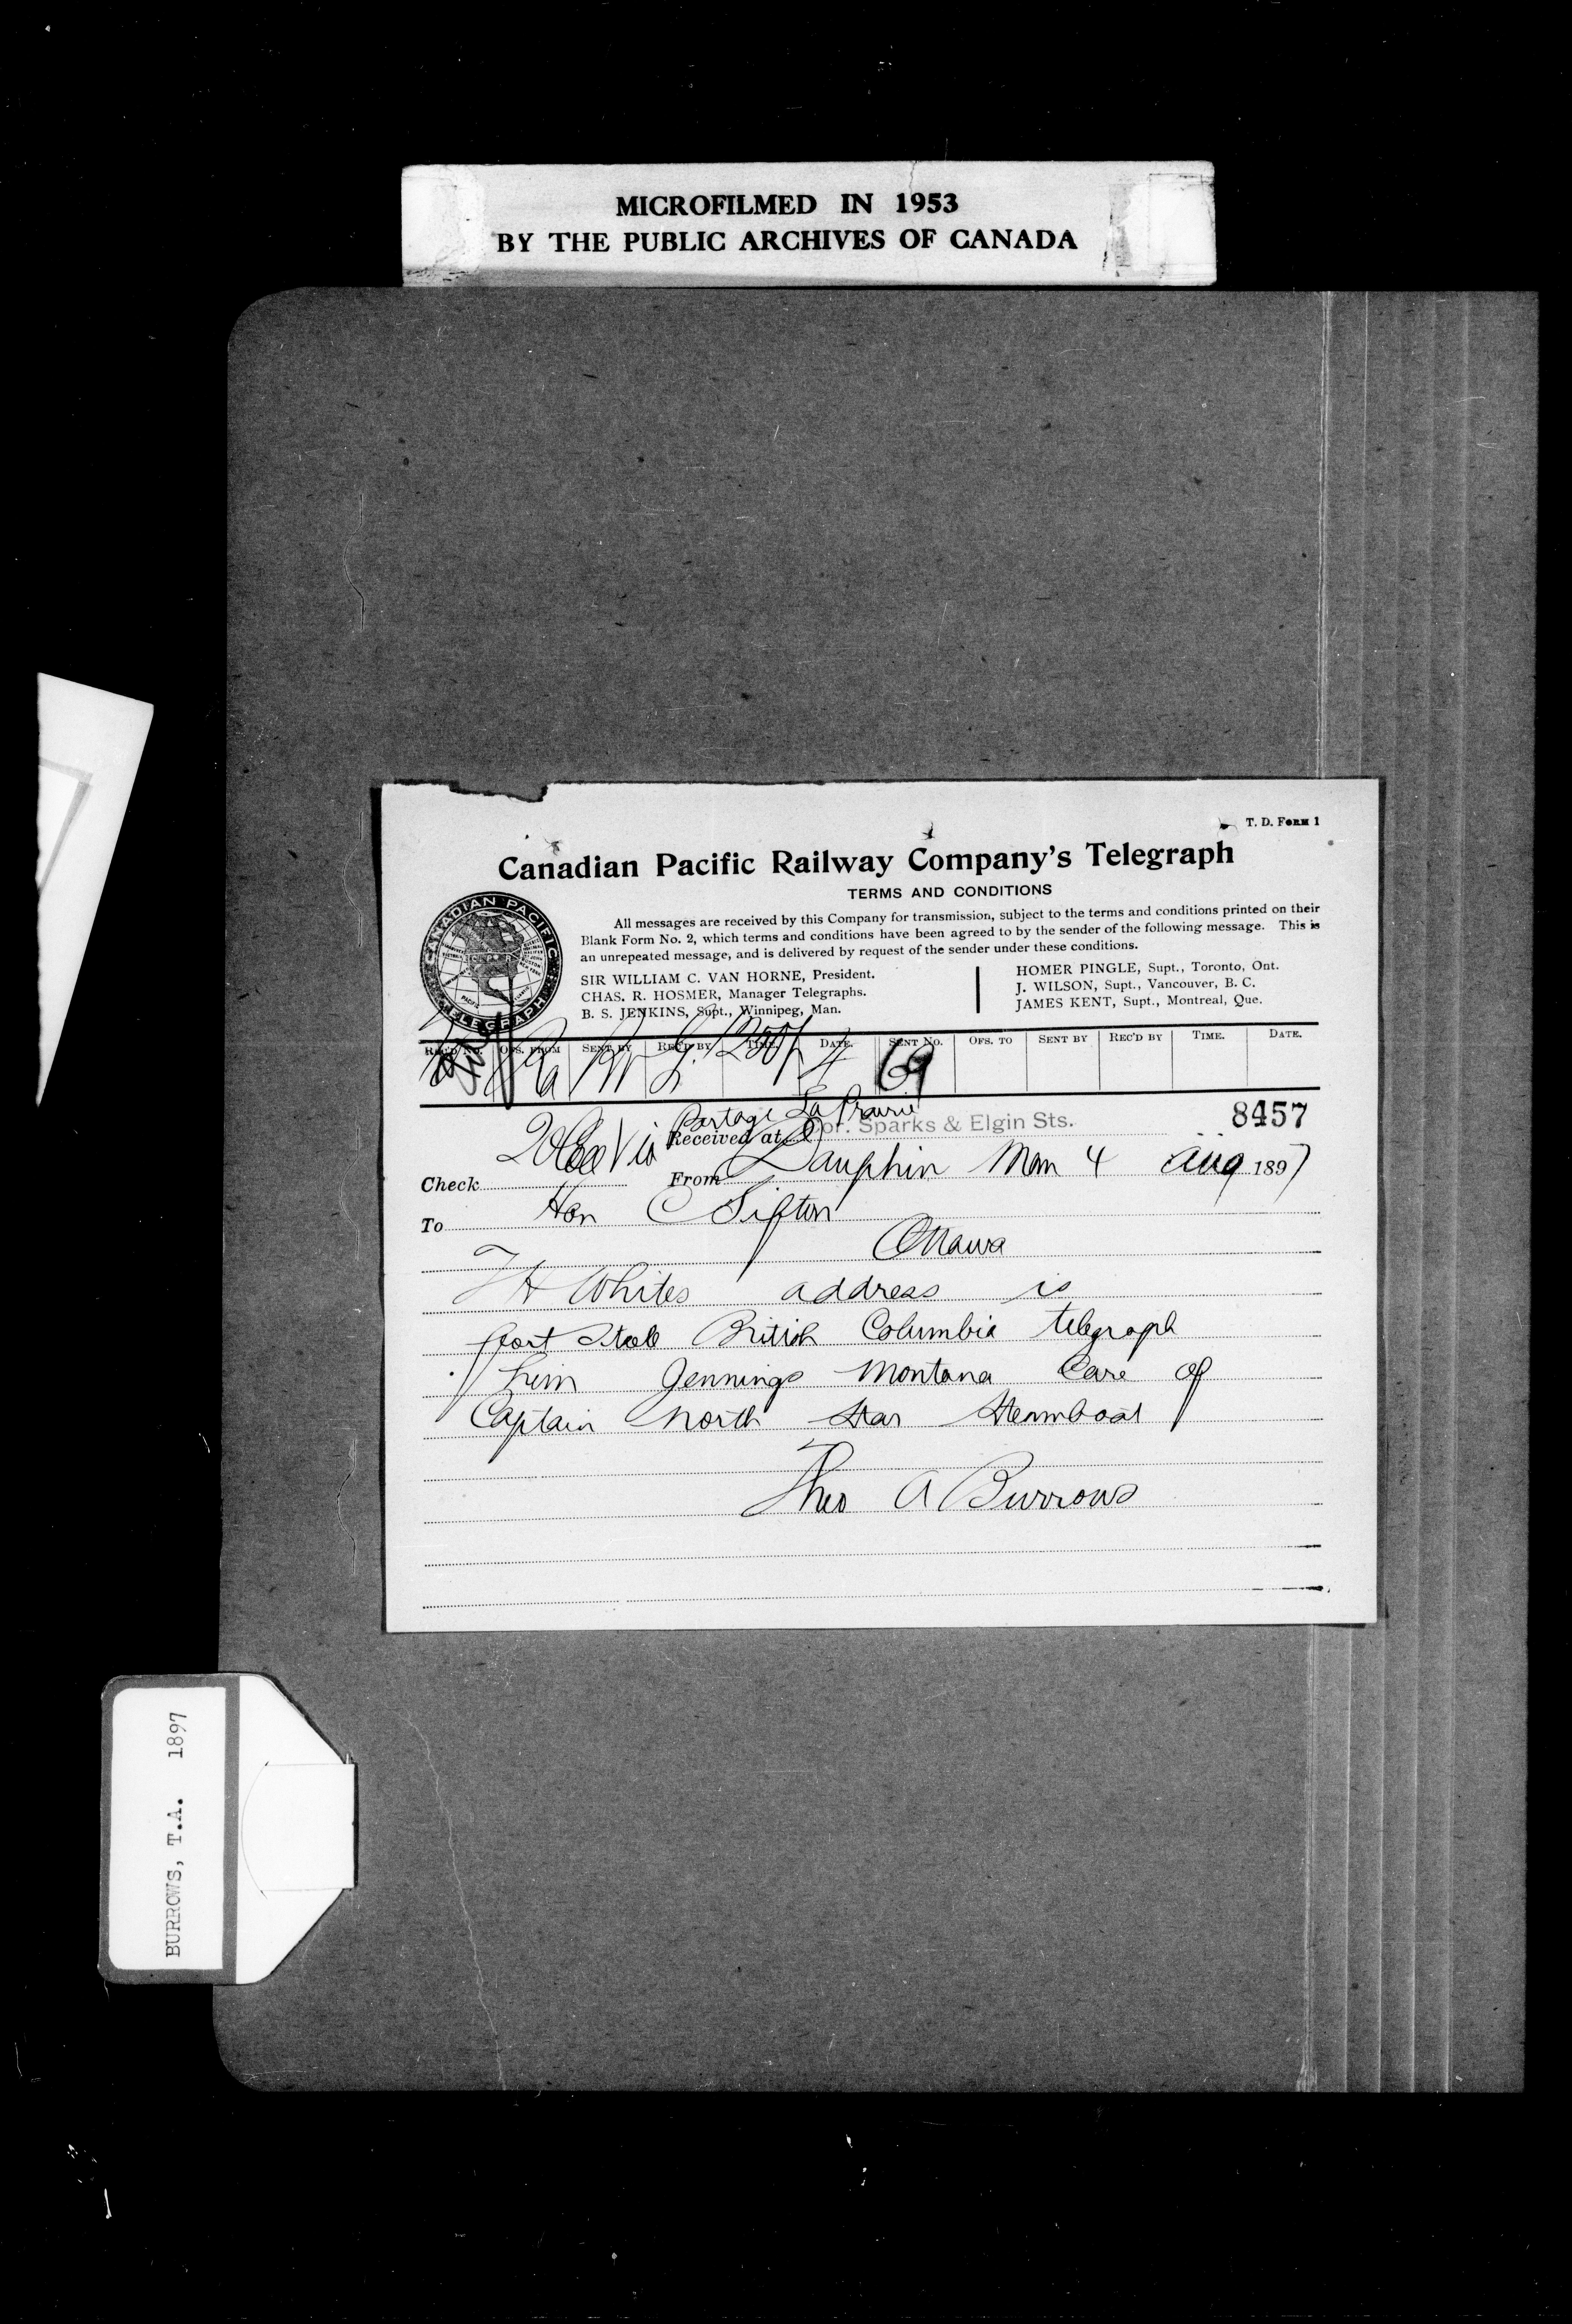 MICROFILMED IN 1953
BY THE PUBLIC ARCHIVES OF CANADA
T. D. FORM 1
Canadian Pacific Railway Company's Telegraph
TERMS AND CONDITIONS
CANADIAN PACIFIC TELEGRAPH
All messages are received by this Company for transmission, subject to the terms and conditions printed on their
Blank Form No. 2, which terms and conditions have been agreed to by the sender of the following message. This is
an unrepeated message, and is delivered by request of the sender under these conditions.
SIR WILLIAM C. VAN HORNE, President.
CHAS. R. HOSMER, Manager Telegraphs.
B. S. JENKINS, Supt., Winnipeg, Man.
HOMER PINGLE, Supt., Toronto, Ont.
J. WILSON, Supt., Vancouver, B. C.
JAMES KENT, Supt., Montreal, Que.
REC'D NO. OFS. FROM SENT BY REC'D BY TIME. DATE. SENT NO. OFS. TO SENT BY REC'D BY TIME. DATE.
4 69
Via Portage La Prairie
Received at Cor. Sparks & Elgin Sts. 8457
Check From Dauphin Man 4 Aug 1897
To Hon C Sifton
Ottawa
T H Whites address is
fort Steele British Columbia telegraph
him Jennings Montana Care of
Captain North Star Steamboat
Theo A Burrows
BURROWS, T.A. 1897